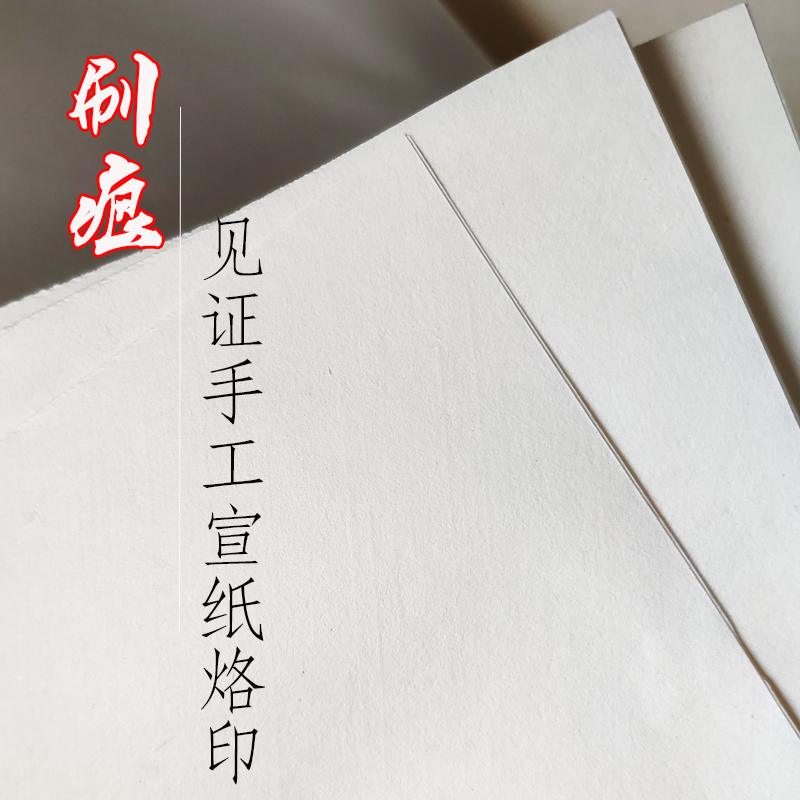 刷痕
见证手工宣纸烙印